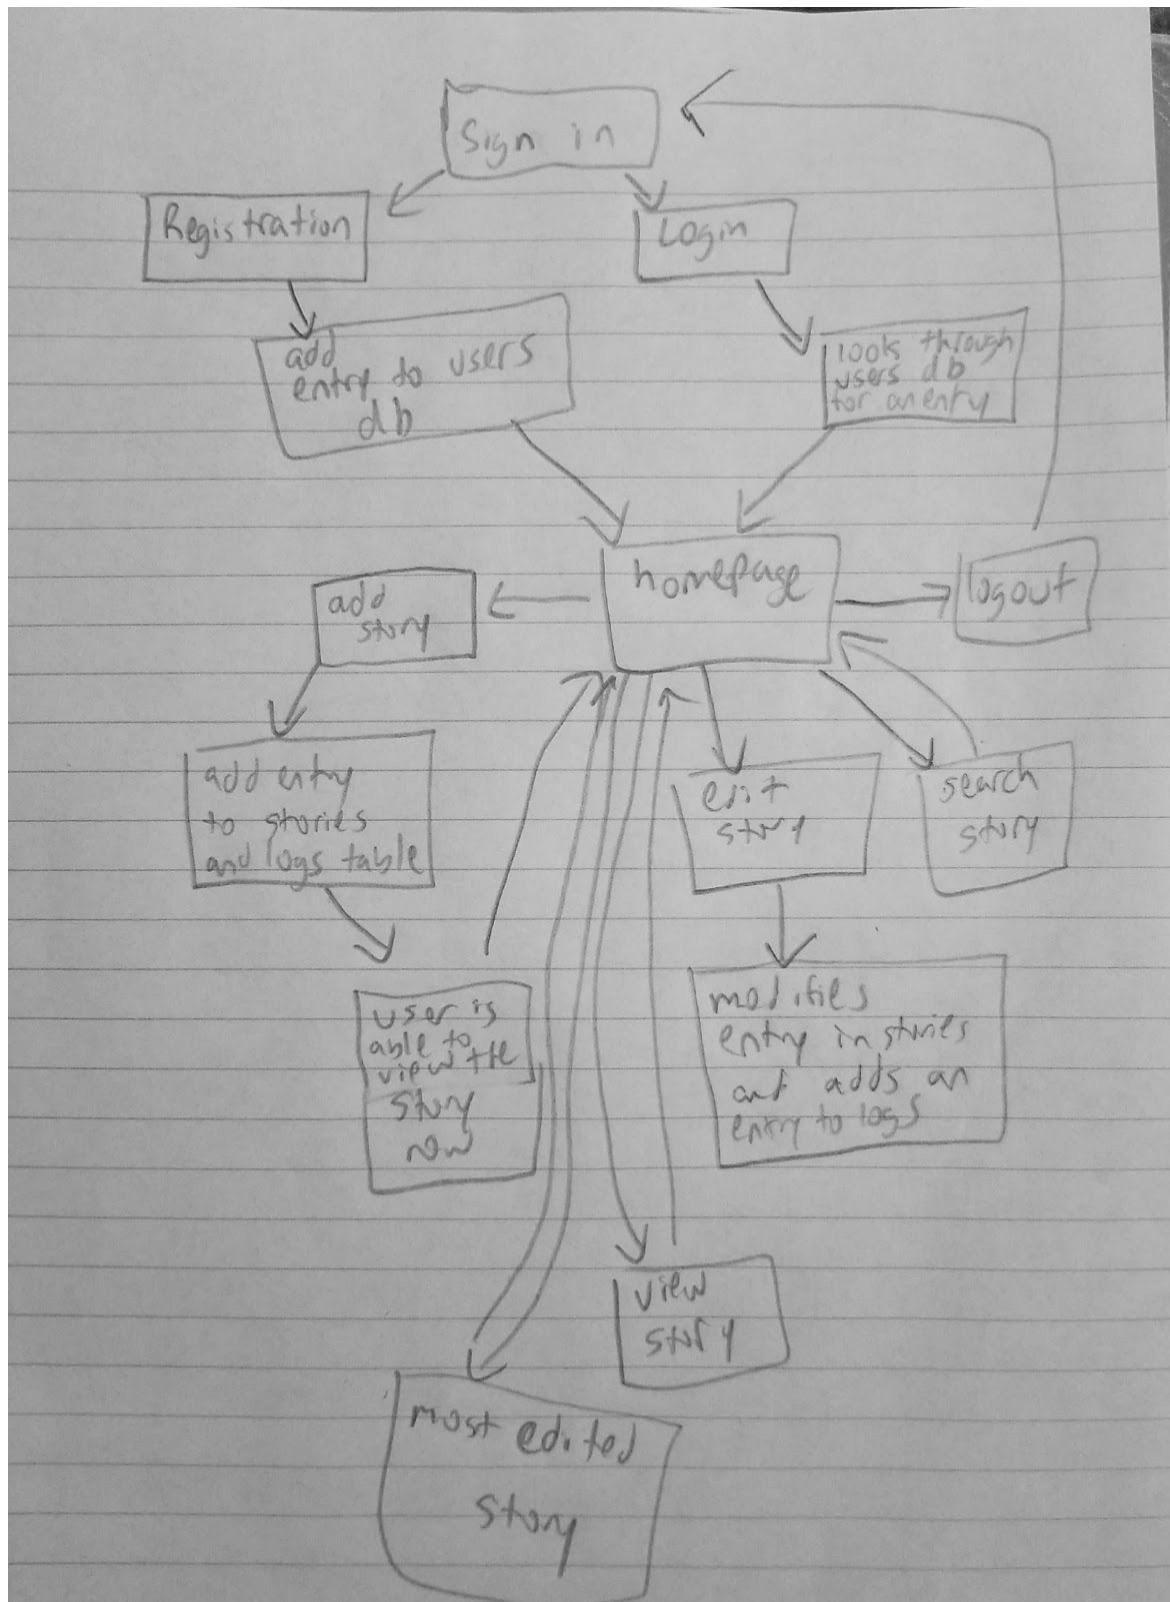 Sign in
Registration
Login
add
entry to users
db
looks through
users db
for an entry
homepage
logout
add
story
add entry
to stories
and logs table
edit
story
search
story
user is
able to
view the
story
now
modifies
entry in stories
and adds an
entry to logs
view
story
most edited
story